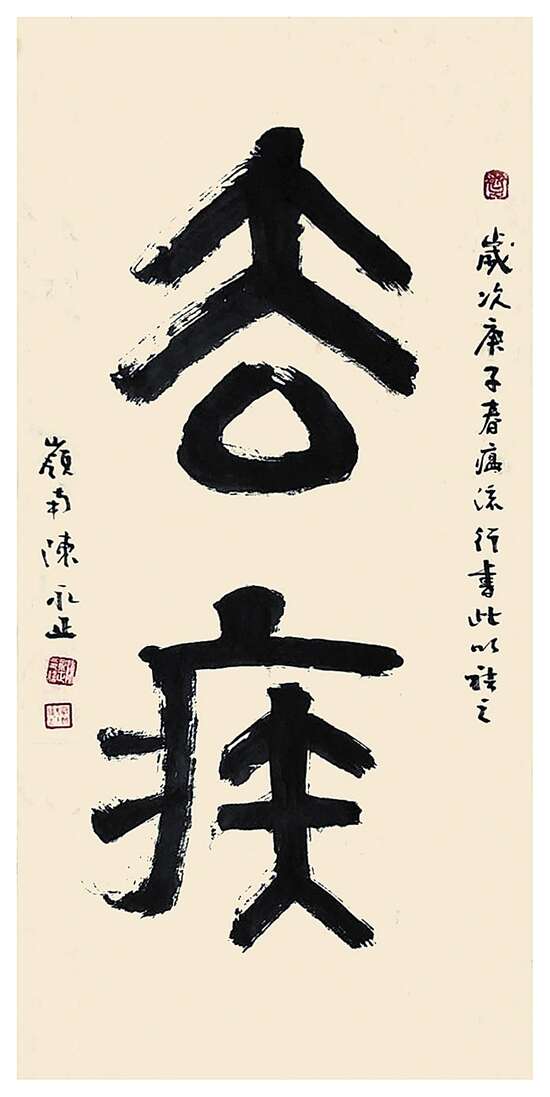 歲次庚子春瘟流行書此以禳之
去疾
嶺南陳永正